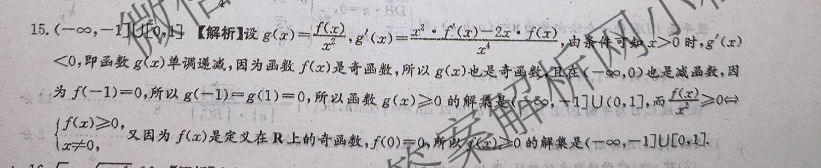 15. (-∞,-1]∪[0,1] 【解析】设 g(x)=f(x)/x², g'(x)=(x²·f'(x)-2x·f(x))/x⁴, 由条件可知 x>0 时, g'(x)
<0,即函数 g(x)单调递减,因为函数 f(x)是奇函数,所以 g(x)也是奇函数,且在(-∞,0)也是减函数,因
为 f(-1)=0,所以 g(-1)=g(1)=0,所以函数 g(x)≥0 的解集是(-∞,-1]∪(0,1],而 f(x)/x² ≥0⇔
{f(x)≥0, x≠0, 又因为 f(x)是定义在 R 上的奇函数, f(0)=0,所以 f(x)≥0 的解集是(-∞,-1]∪[0,1].
答案解析网